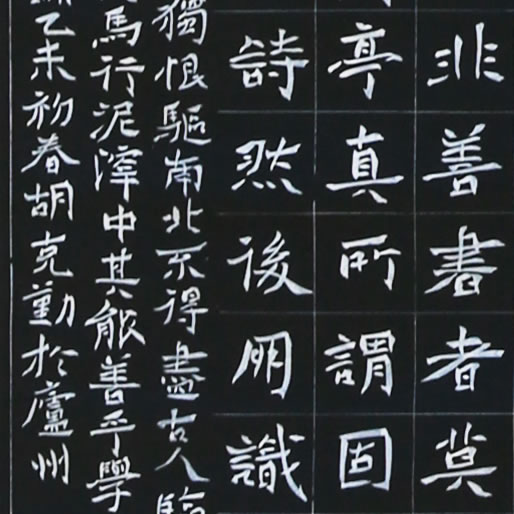 非善書者莫
亭真所謂固
詩然後朋識
獨恨驅南北不得盡古人臨
馬行泥滓中其能善乎學
乙未初春胡克勤於廬州